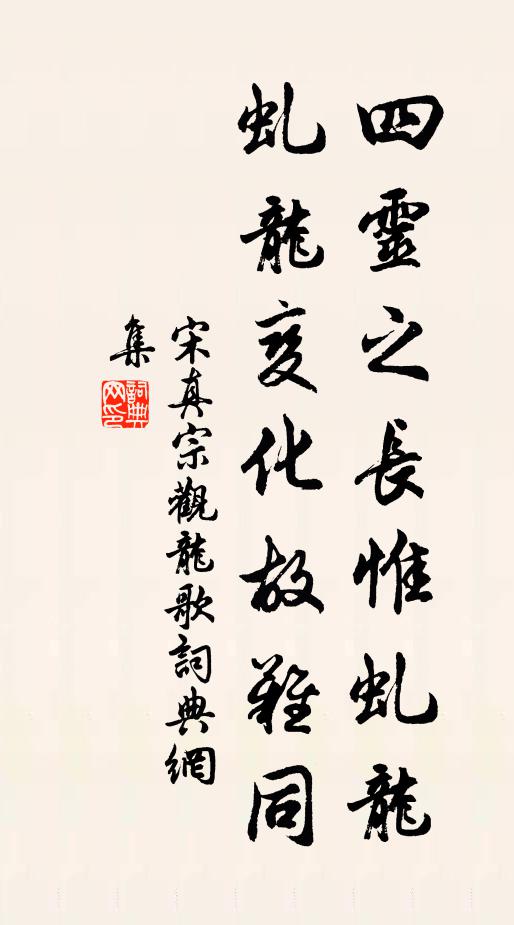 四靈之長惟虬龍
虬龍變化故難同
宋真宗觀龍歌詞典網
集
詞典
网印